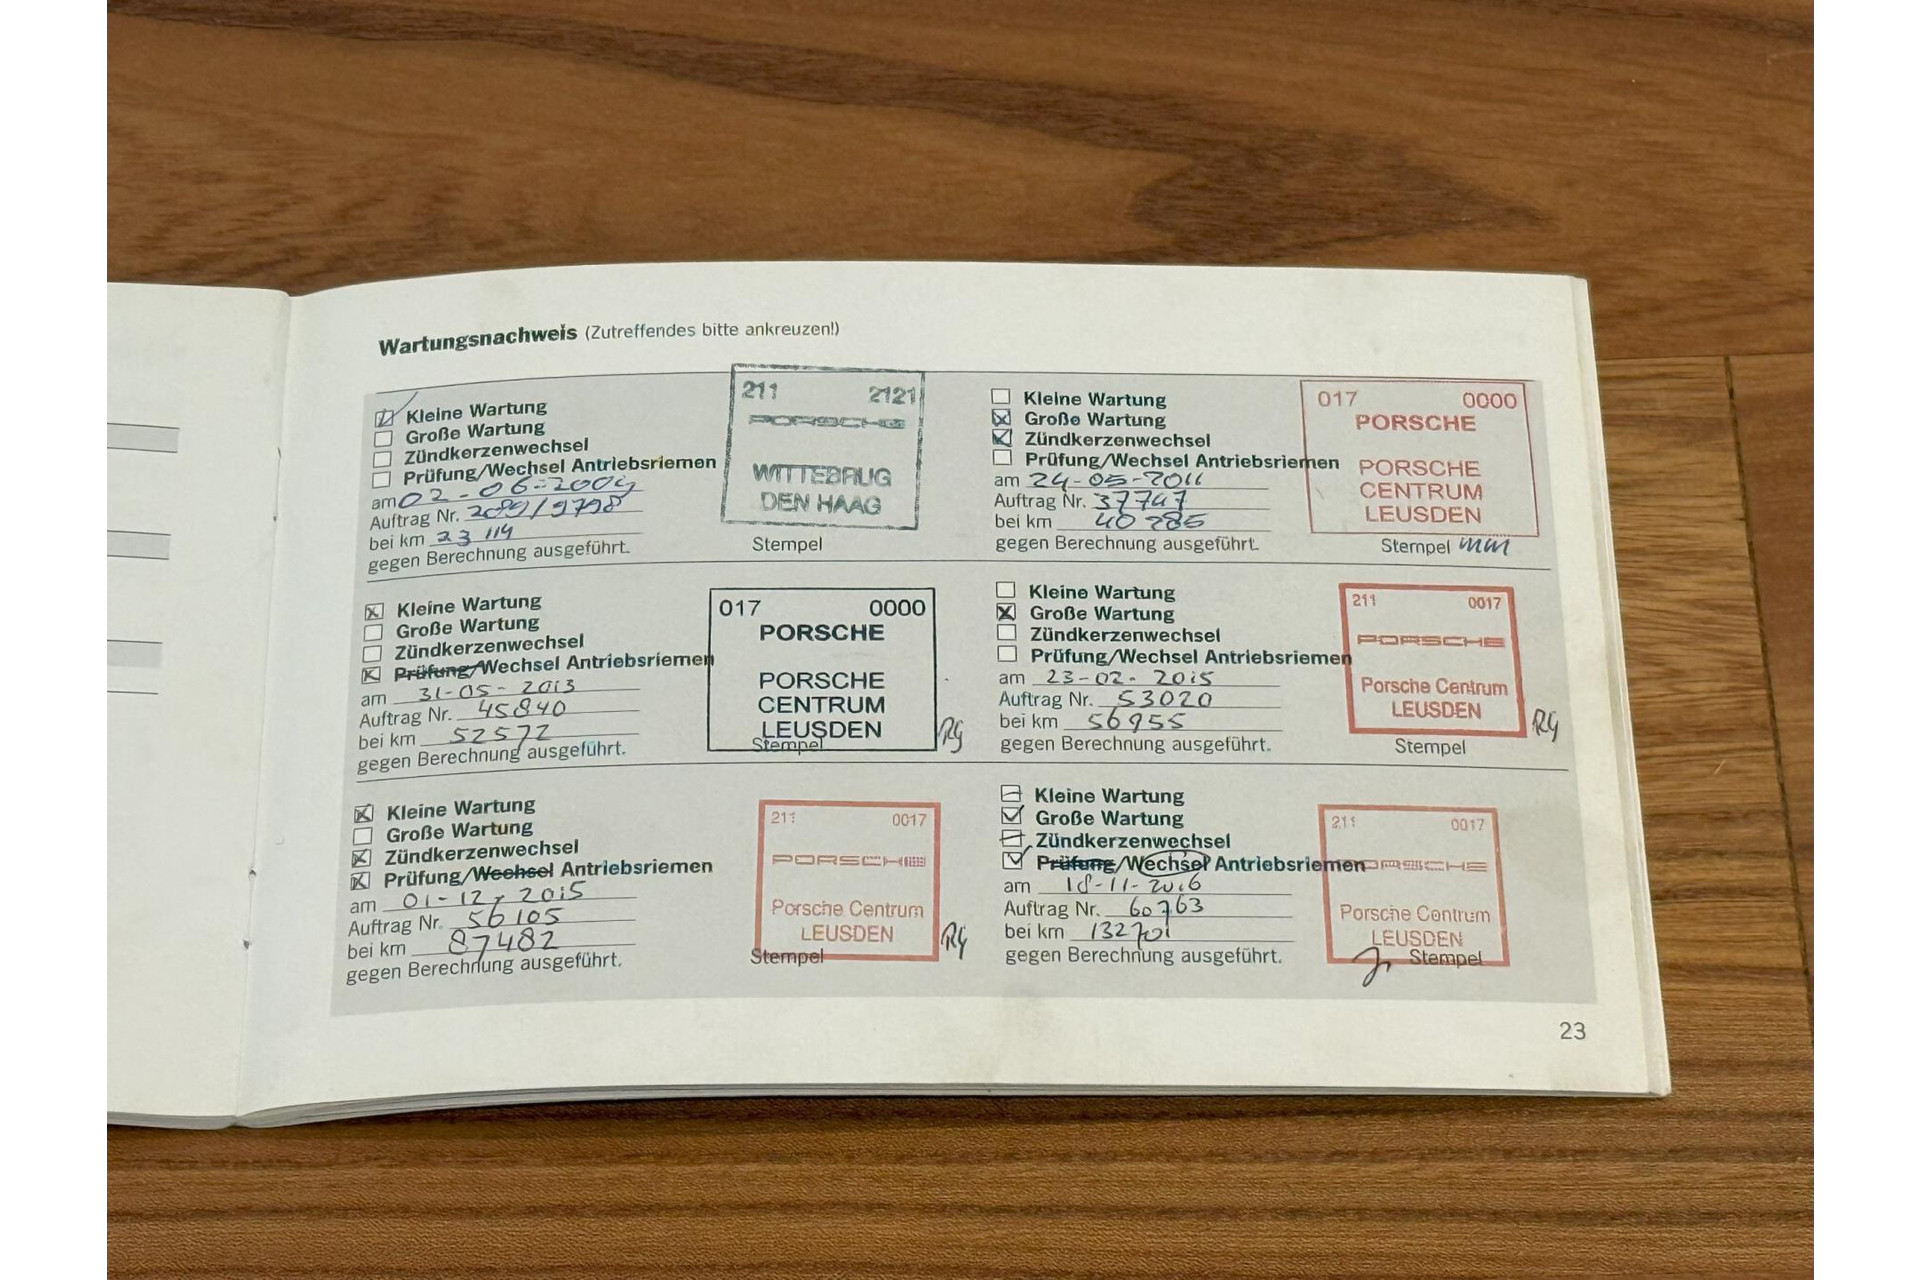 Wartungsnachweis (Zutreffendes bitte ankreuzen!)
Kleine Wartung
Große Wartung
Zündkerzenwechsel
Prüfung/Wechsel Antriebsriemen
am 02-06-2009
Auftrag Nr.
bei km 23 114
gegen Berechnung ausgeführt.
211 2121
PORSCHE
WITTEBRUG
DEN HAAG
Stempel
Kleine Wartung
Große Wartung
Zündkerzenwechsel
Prüfung/Wechsel Antriebsriemen
am 24-05-2011
Auftrag Nr. 37747
bei km 40285
gegen Berechnung ausgeführt.
017 0000
PORSCHE
PORSCHE
CENTRUM
LEUSDEN
Stempel
Kleine Wartung
Große Wartung
Zündkerzenwechsel
Prüfung/Wechsel Antriebsriemen
am 31-05-2013
Auftrag Nr. 45840
bei km 52572
gegen Berechnung ausgeführt.
017 0000
PORSCHE
PORSCHE
CENTRUM
LEUSDEN
Stempel
RG
Kleine Wartung
Große Wartung
Zündkerzenwechsel
Prüfung/Wechsel Antriebsriemen
am 23-02-2015
Auftrag Nr. 53020
bei km 56955
gegen Berechnung ausgeführt.
211 0017
PORSCHE
Porsche Centrum
LEUSDEN
Stempel
RG
Kleine Wartung
Große Wartung
Zündkerzenwechsel
Prüfung/Wechsel Antriebsriemen
am 01-12-2015
Auftrag Nr. 56105
bei km 87482
gegen Berechnung ausgeführt.
211 0017
PORSCHE
Porsche Centrum
LEUSDEN
Stempel
RG
Kleine Wartung
Große Wartung
Zündkerzenwechsel
Prüfung/Wechsel Antriebsriemen
am 18-11-2016
Auftrag Nr. 60763
bei km 132701
gegen Berechnung ausgeführt.
211 0017
PORSCHE
Porsche Centrum
LEUSDEN
Stempel
23